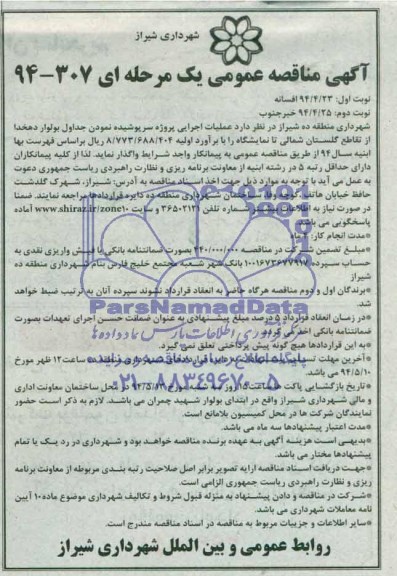 شهرداری شیراز
آگهی مناقصه عمومی یک مرحله ای ۳۰۷-۹۴
نوبت اول: ۹۴/۴/۲۳ افسانه
نوبت دوم: ۹۴/۴/۲۵ خبرجنوب
شهرداری منطقه ده شیراز در نظر دارد عملیات اجرایی پروژه سرپوشیده نمودن جداول بولوار دهخدا
از تقاطع گلستان شمالی تا نمایشگاه را با برآورد اولیه ۸/۷۷۳/۶۸۸/۴۰۴ ریال براساس فهرست بها
ابنیه سال ۹۴ از طریق مناقصه عمومی به پیمانکار واجد شرایط واگذار نماید. لذا از کلیه پیمانکاران
دارای حداقل رتبه ۵ در رشته ابنیه از معاونت برنامه ریزی و نظارت راهبردی ریاست جمهوری دعوت
به عمل می آید با توجه به موارد ذیل جهت اخذ اسناد مناقصه به آدرس: شیراز، شهرک گلدشت
حافظ خیابان هاتف کوچه وفا ساختمان شهرداری منطقه ده دایره قراردادها مراجعه نمایند. ضمنا
در صورت نیاز به اطلاعات بیشتر شماره تلفن ۳۶۵۰۲۱۳۱ و سایت www.shiraz.ir/zone۱۰ آماده
پاسخگویی می باشد
*مدت انجام کار: ماه
*مبلغ تضمین شرکت در مناقصه ۴۴۰/۰۰۰/۰۰۰ بصورت ضمانتنامه بانکی یا فیش واریزی نقدی به
حساب سپرده ۱۰۰۱۶۷۳۶۷۷۹۱۷ بانک شهر شعبه مجتمع خلیج فارس بنام شهرداری منطقه ده
شیراز
*برندگان اول و دوم مناقصه هرگاه حاضر به انعقاد قرارداد نشوند سپرده آنان به ترتیب ضبط خواهد
شد.
*در زمان انعقاد قرارداد ۵ درصد مبلغ پیشنهادی به عنوان ضمانت حسن اجرای تعهدات بصورت
ضمانتنامه بانکی اخذ می گردد
*به این قراردادها هیچ گونه پیش پرداختی تعلق نمی گیرد.
*آخرین مهلت ساعت ۱۲ ظهر مورخ
۹۴/۵/۱۰ می باشد
*تاریخ بازگشایی پاکت ساعت ۱۵ روز مورخ در محل ساختمان معاونت اداری
و مالی شهرداری شیراز واقع در ابتدای بولوار شهید چمران می باشد. لازم به ذکر است حضور
نمایندگان شرکت ها در محل کمیسیون بلامانع است.
*مدت اعتبار پیشنهادها سه ماه می باشد.
*بدیهی است هزینه آگهی به عهده برنده مناقصه خواهد بود و شهرداری در رد یک یا تمام
پیشنهادها مختار می باشد.
*جهت دریافت اسناد مناقصه ارایه تصویر برابر اصل صلاحیت رتبه بندی مربوطه از معاونت برنامه
ریزی و نظارت راهبردی ریاست جمهوری الزامی است.
*شرکت در مناقصه و دادن پیشنهاد به منزله قبول شروط و تکالیف شهرداری موضوع ماده ۱۰ آیین
نامه معاملات شهرداری می باشد.
*سایر اطلاعات و جزییات مربوط به مناقصه در اسناد مناقصه مندرج است.
روابط عمومی و بین الملل شهرداری شیراز
ParsNamadData
پایگاه اطلاع رسانی
۰۲۱-۸۸۳۴۹۶۷۰-۵